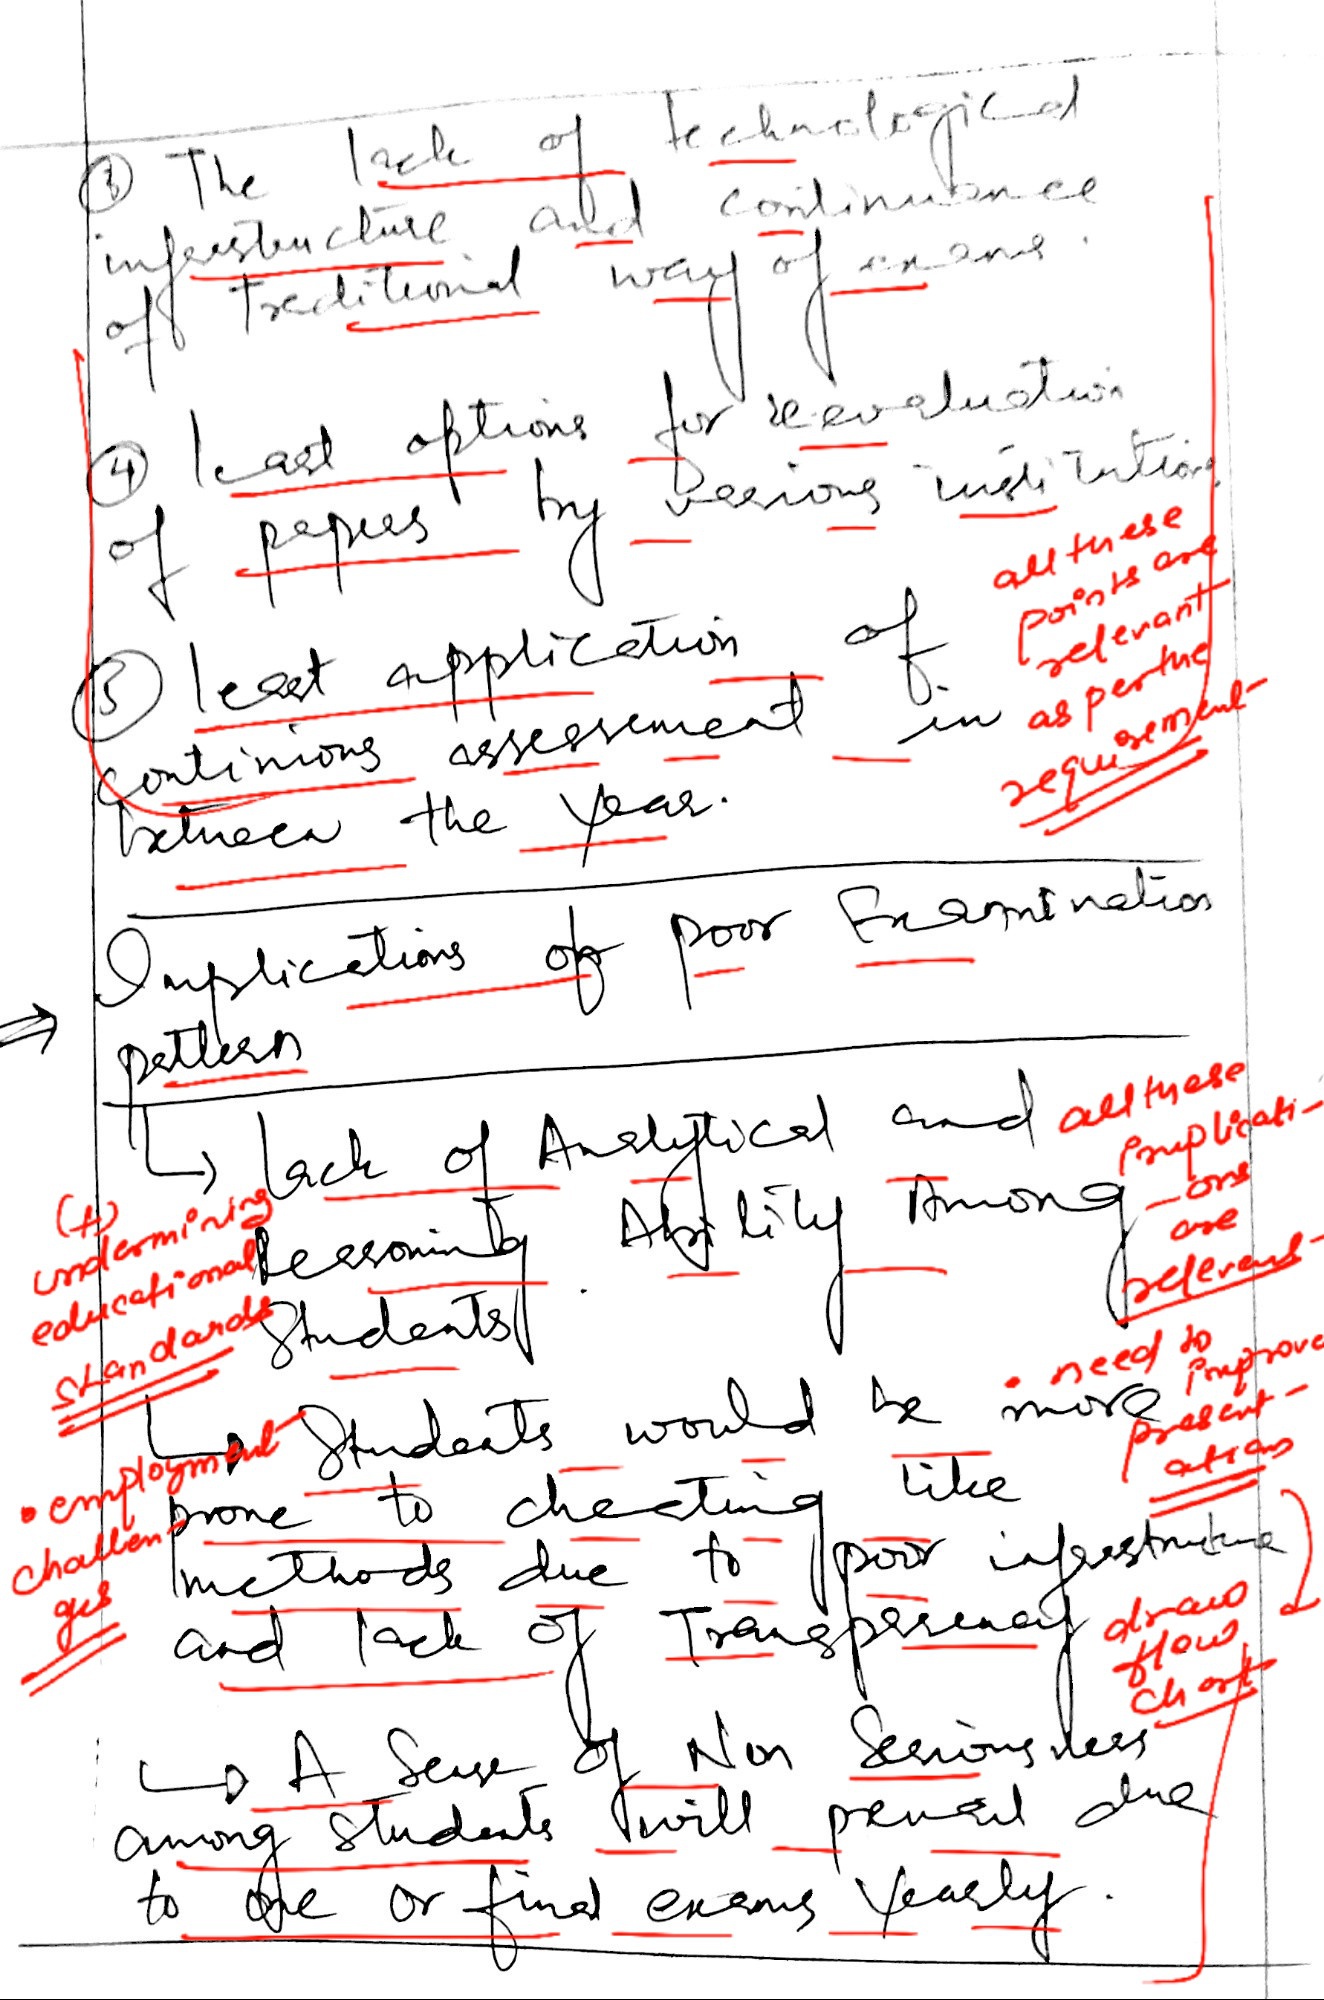 ③ The lack of technological
infrastructure and continuance
of Traditional way of exams.
④ least options for reevaluation
of papers by various institutions
all these
points are
relevant
as per the
requirement
⑤ least application of
continious assessment in
between the year.
Implications of poor Examination
pattern
↳ lack of Analytical and
Reasoning Ability Among
Students
all these
implicati-
-ons
are
relevant
(+)
undermining
educational
standards
• need to
improve
present-
ations
↳ Students would be more
prone to cheating like
methods due to poor infrastructure
and lack of Transparency
• employment
challen-
ges
draw
flow
chart
↳ A Sense of Non Seriousness
among students will prevail due
to one or final exams yearly.